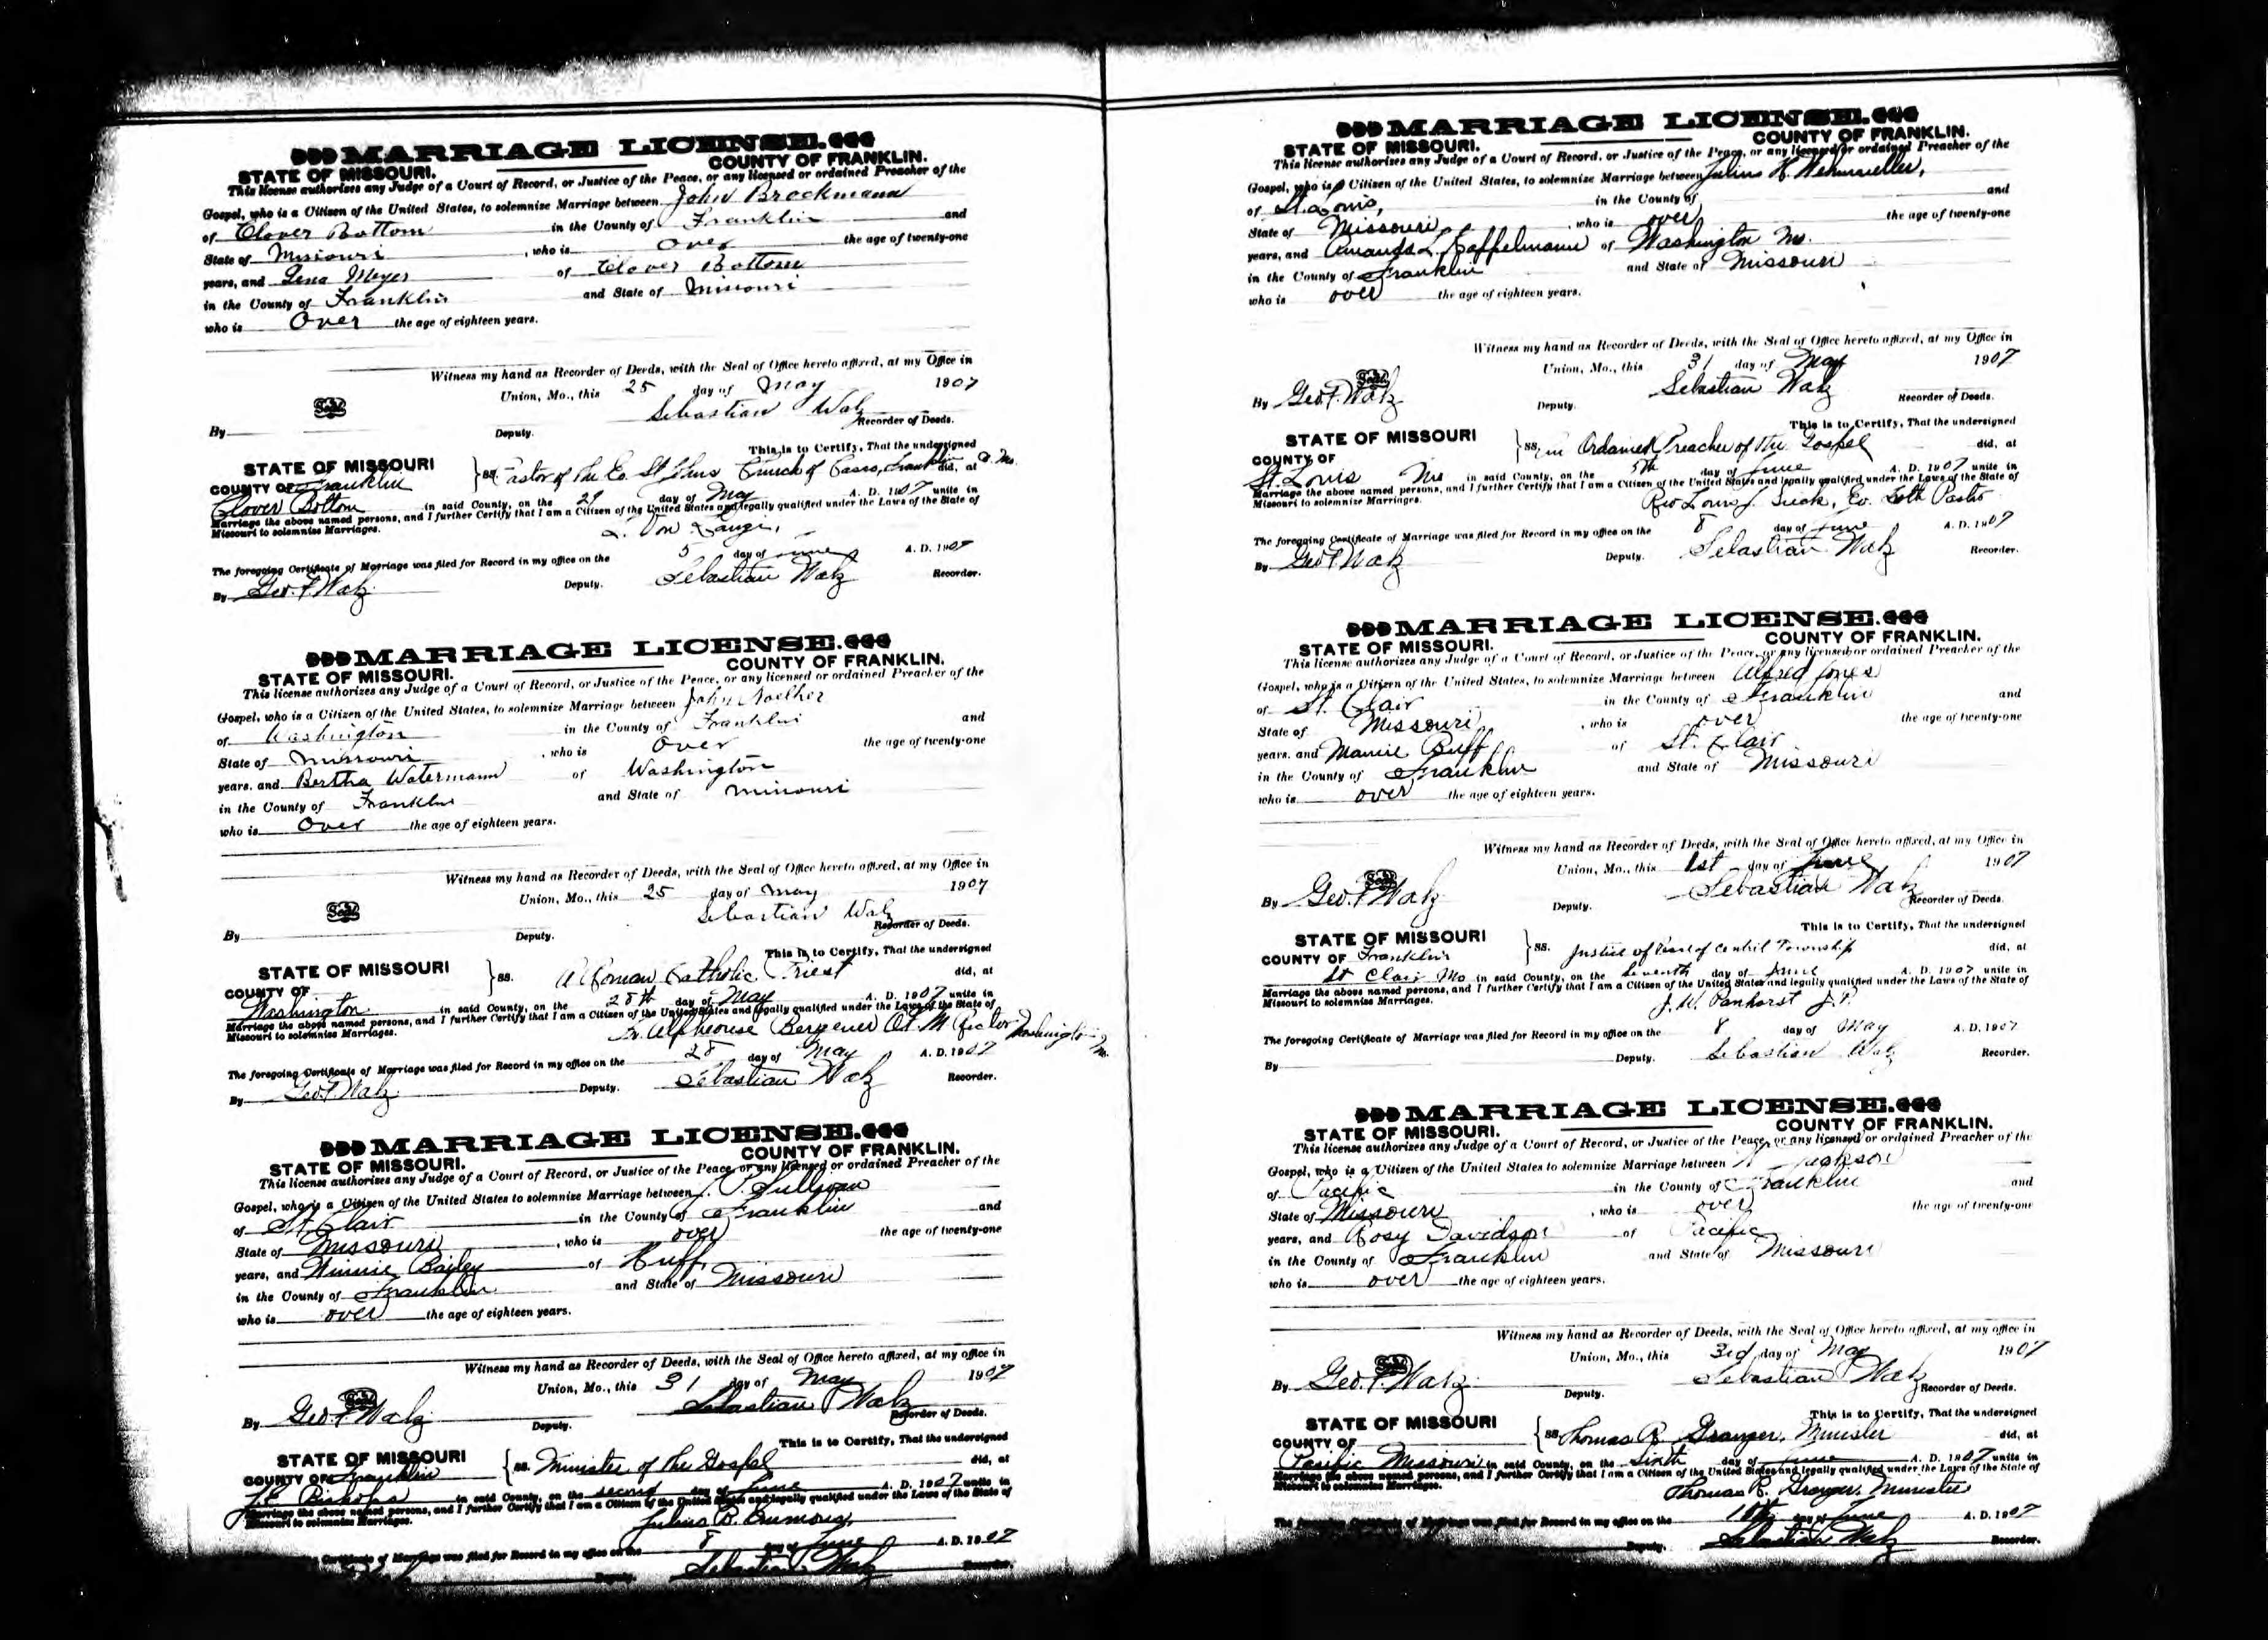 MARRIAGE LICENSE.
STATE OF MISSOURI. COUNTY OF FRANKLIN.
This license authorizes any Judge of a Court of Record, or Justice of the Peace, or any licensed or ordained Preacher of the
Gospel, who is a Citizen of the United States, to solemnize Marriage between John Brockmann
of Clover Bottom in the County of Franklin and
State of Missouri, who is Over the age of twenty-one
years, and Lena Meyer of Clover Bottom
in the County of Franklin and State of Missouri
who is Over the age of eighteen years.
Witness my hand as Recorder of Deeds, with the Seal of Office hereto affixed, at my Office in
Union, Mo., this 25 day of May 1907
Seal Sebastian Walz
By Deputy. Recorder of Deeds.
This is to Certify, That the undersigned
STATE OF MISSOURI } SS. Pastor of the Ev. St Johns Church of Casco, Franklin Co. Mo. did, at
COUNTY OF Franklin
Clover Bottom in said County, on the 29 day of May A. D. 1907 unite in
Marriage the above named persons, and I further Certify that I am a Citizen of the United States and legally qualified under the Laws of the State of
Missouri to solemnize Marriages.
The foregoing Certificate of Marriage was filed for Record in my office on the 5 day of June A. D. 1907
By Geo. F. Walz Deputy. Sebastian Walz Recorder.
MARRIAGE LICENSE.
STATE OF MISSOURI. COUNTY OF FRANKLIN.
This license authorizes any Judge of a Court of Record, or Justice of the Peace, or any licensed or ordained Preacher of the
Gospel, who is a Citizen of the United States, to solemnize Marriage between John Noelker
of Washington in the County of Franklin and
State of Missouri, who is Over the age of twenty-one
years, and Bertha Watermann of Washington
in the County of Franklin and State of Missouri
who is Over the age of eighteen years.
Witness my hand as Recorder of Deeds, with the Seal of Office hereto affixed, at my Office in
Union, Mo., this 25 day of May 1907
Seal Sebastian Walz
By Deputy. Recorder of Deeds.
This is to Certify, That the undersigned
STATE OF MISSOURI } SS. A Roman Catholic Priest did, at
COUNTY OF
Washington in said County, on the 28th day of May A. D. 1907 unite in
Marriage the above named persons, and I further Certify that I am a Citizen of the United States and legally qualified under the Laws of the State of
Missouri to solemnize Marriages. Fr. Alphonse Bergener O.F.M Rector Washington Mo.
The foregoing Certificate of Marriage was filed for Record in my office on the 28 day of May A. D. 1907
By Geo. F. Walz Deputy. Sebastian Walz Recorder.
MARRIAGE LICENSE.
STATE OF MISSOURI. COUNTY OF FRANKLIN.
This license authorizes any Judge of a Court of Record, or Justice of the Peace, or any licensed or ordained Preacher of the
Gospel, who is a Citizen of the United States to solemnize Marriage between P. Sullivan
of St. Clair in the County of Franklin and
State of Missouri, who is over the age of twenty-one
years, and Winnie Bailey of Huff,
in the County of Franklin and State of Missouri
who is over the age of eighteen years.
Witness my hand as Recorder of Deeds, with the Seal of Office hereto affixed, at my office in
Union, Mo., this 31 day of May 1907
Seal Sebastian Walz
By Geo F Walz Deputy. Recorder of Deeds.
This is to Certify, That the undersigned
STATE OF MISSOURI } SS. Minister of the Gospel did, at
COUNTY OF Franklin
in said County, on the second day of June A. D. 1907 unite in
Marriage the above named persons, and I further Certify that I am a Citizen of the United States and legally qualified under the Laws of the State of
Missouri to solemnize Marriages. Julius B.
Certificate of Marriage was filed for Record in my office on the 8 day of June A. D. 1907
Deputy. Sebastian Walz Recorder.
MARRIAGE LICENSE.
STATE OF MISSOURI. COUNTY OF FRANKLIN.
This license authorizes any Judge of a Court of Record, or Justice of the Peace, or any licensed or ordained Preacher of the
Gospel, who is a Citizen of the United States, to solemnize Marriage between Julius H. Wehmueller,
of St. Louis, in the County of and
State of Missouri, who is over the age of twenty-one
years, and Amanda L. Kappelmann of Washington Mo.
in the County of Franklin and State of Missouri
who is over the age of eighteen years.
Witness my hand as Recorder of Deeds, with the Seal of Office hereto affixed, at my Office in
Union, Mo., this 31 day of May 1907
Seal Sebastian Walz
By Geo. F. Walz Deputy. Recorder of Deeds.
This is to Certify, That the undersigned
STATE OF MISSOURI } SS. an Ordained Preacher of the Gospel did, at
COUNTY OF
St. Louis Mo in said County, on the 5th day of June A. D. 1907 unite in
Marriage the above named persons, and I further Certify that I am a Citizen of the United States and legally qualified under the Laws of the State of
Missouri to solemnize Marriages. Rev Louis J. Ev. Luth Pastor
The foregoing Certificate of Marriage was filed for Record in my office on the 8 day of June A. D. 1907
By Geo F Walz Deputy. Sebastian Walz Recorder.
MARRIAGE LICENSE.
STATE OF MISSOURI. COUNTY OF FRANKLIN.
This license authorizes any Judge of a Court of Record, or Justice of the Peace, or any licensed or ordained Preacher of the
Gospel, who is a Citizen of the United States, to solemnize Marriage between Alfred Jones
of St. Clair in the County of Franklin and
State of Missouri, who is over the age of twenty-one
years, and Mamie Buff of St. Clair
in the County of Franklin and State of Missouri
who is over the age of eighteen years.
Witness my hand as Recorder of Deeds, with the Seal of Office hereto affixed, at my Office in
Union, Mo., this 1st day of June 1907
Seal Sebastian Walz
By Geo. F. Walz Deputy. Recorder of Deeds.
This is to Certify, That the undersigned
STATE OF MISSOURI } SS. Justice of Peace of Central Township did, at
COUNTY OF Franklin
St Clair Mo in said County, on the Seventh day of June A. D. 1907 unite in
Marriage the above named persons, and I further Certify that I am a Citizen of the United States and legally qualified under the Laws of the State of
Missouri to solemnize Marriages. J. W. Panhorst J. P.
The foregoing Certificate of Marriage was filed for Record in my office on the 8 day of May A. D. 1907
By Deputy. Sebastian Walz Recorder.
MARRIAGE LICENSE.
STATE OF MISSOURI. COUNTY OF FRANKLIN.
This license authorizes any Judge of a Court of Record, or Justice of the Peace, or any licensed or ordained Preacher of the
Gospel, who is a Citizen of the United States to solemnize Marriage between Jackson
of Pacific in the County of Franklin and
State of Missouri, who is over the age of twenty-one
years, and Rosy Davidson of Pacific
in the County of Franklin and State of Missouri
who is over the age of eighteen years.
Witness my hand as Recorder of Deeds, with the Seal of Office hereto affixed, at my office in
Union, Mo., this 3rd day of May 1907
Seal Sebastian Walz
By Geo. F. Walz Deputy. Recorder of Deeds.
This is to Certify, That the undersigned
STATE OF MISSOURI } SS. Thomas R. Granger, Minister did, at
COUNTY OF
Pacific Missouri in said County, on the Sixth day of June A. D. 1907 unite in
Marriage the above named persons, and I further Certify that I am a Citizen of the United States and legally qualified under the Laws of the State of
Missouri to solemnize Marriages. Thomas R. Granger, Minister
The foregoing Certificate of Marriage was filed for Record in my office on the 10th day of June A. D. 1907
Deputy. Sebastian Walz Recorder.